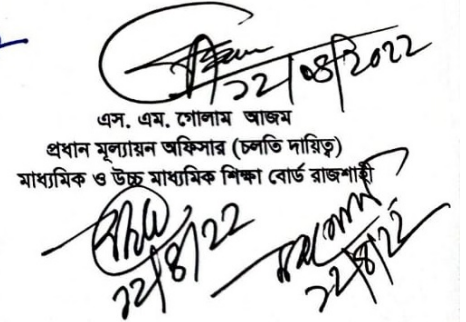 ১২/০৪/২০২২
এস. এম. গোলাম আজম
প্রধান মূল্যায়ন অফিসার (চলতি দায়িত্ব)
মাধ্যমিক ও উচ্চ মাধ্যমিক শিক্ষা বোর্ড রাজশাহী
১২/৪/২২
১২/৪/২২